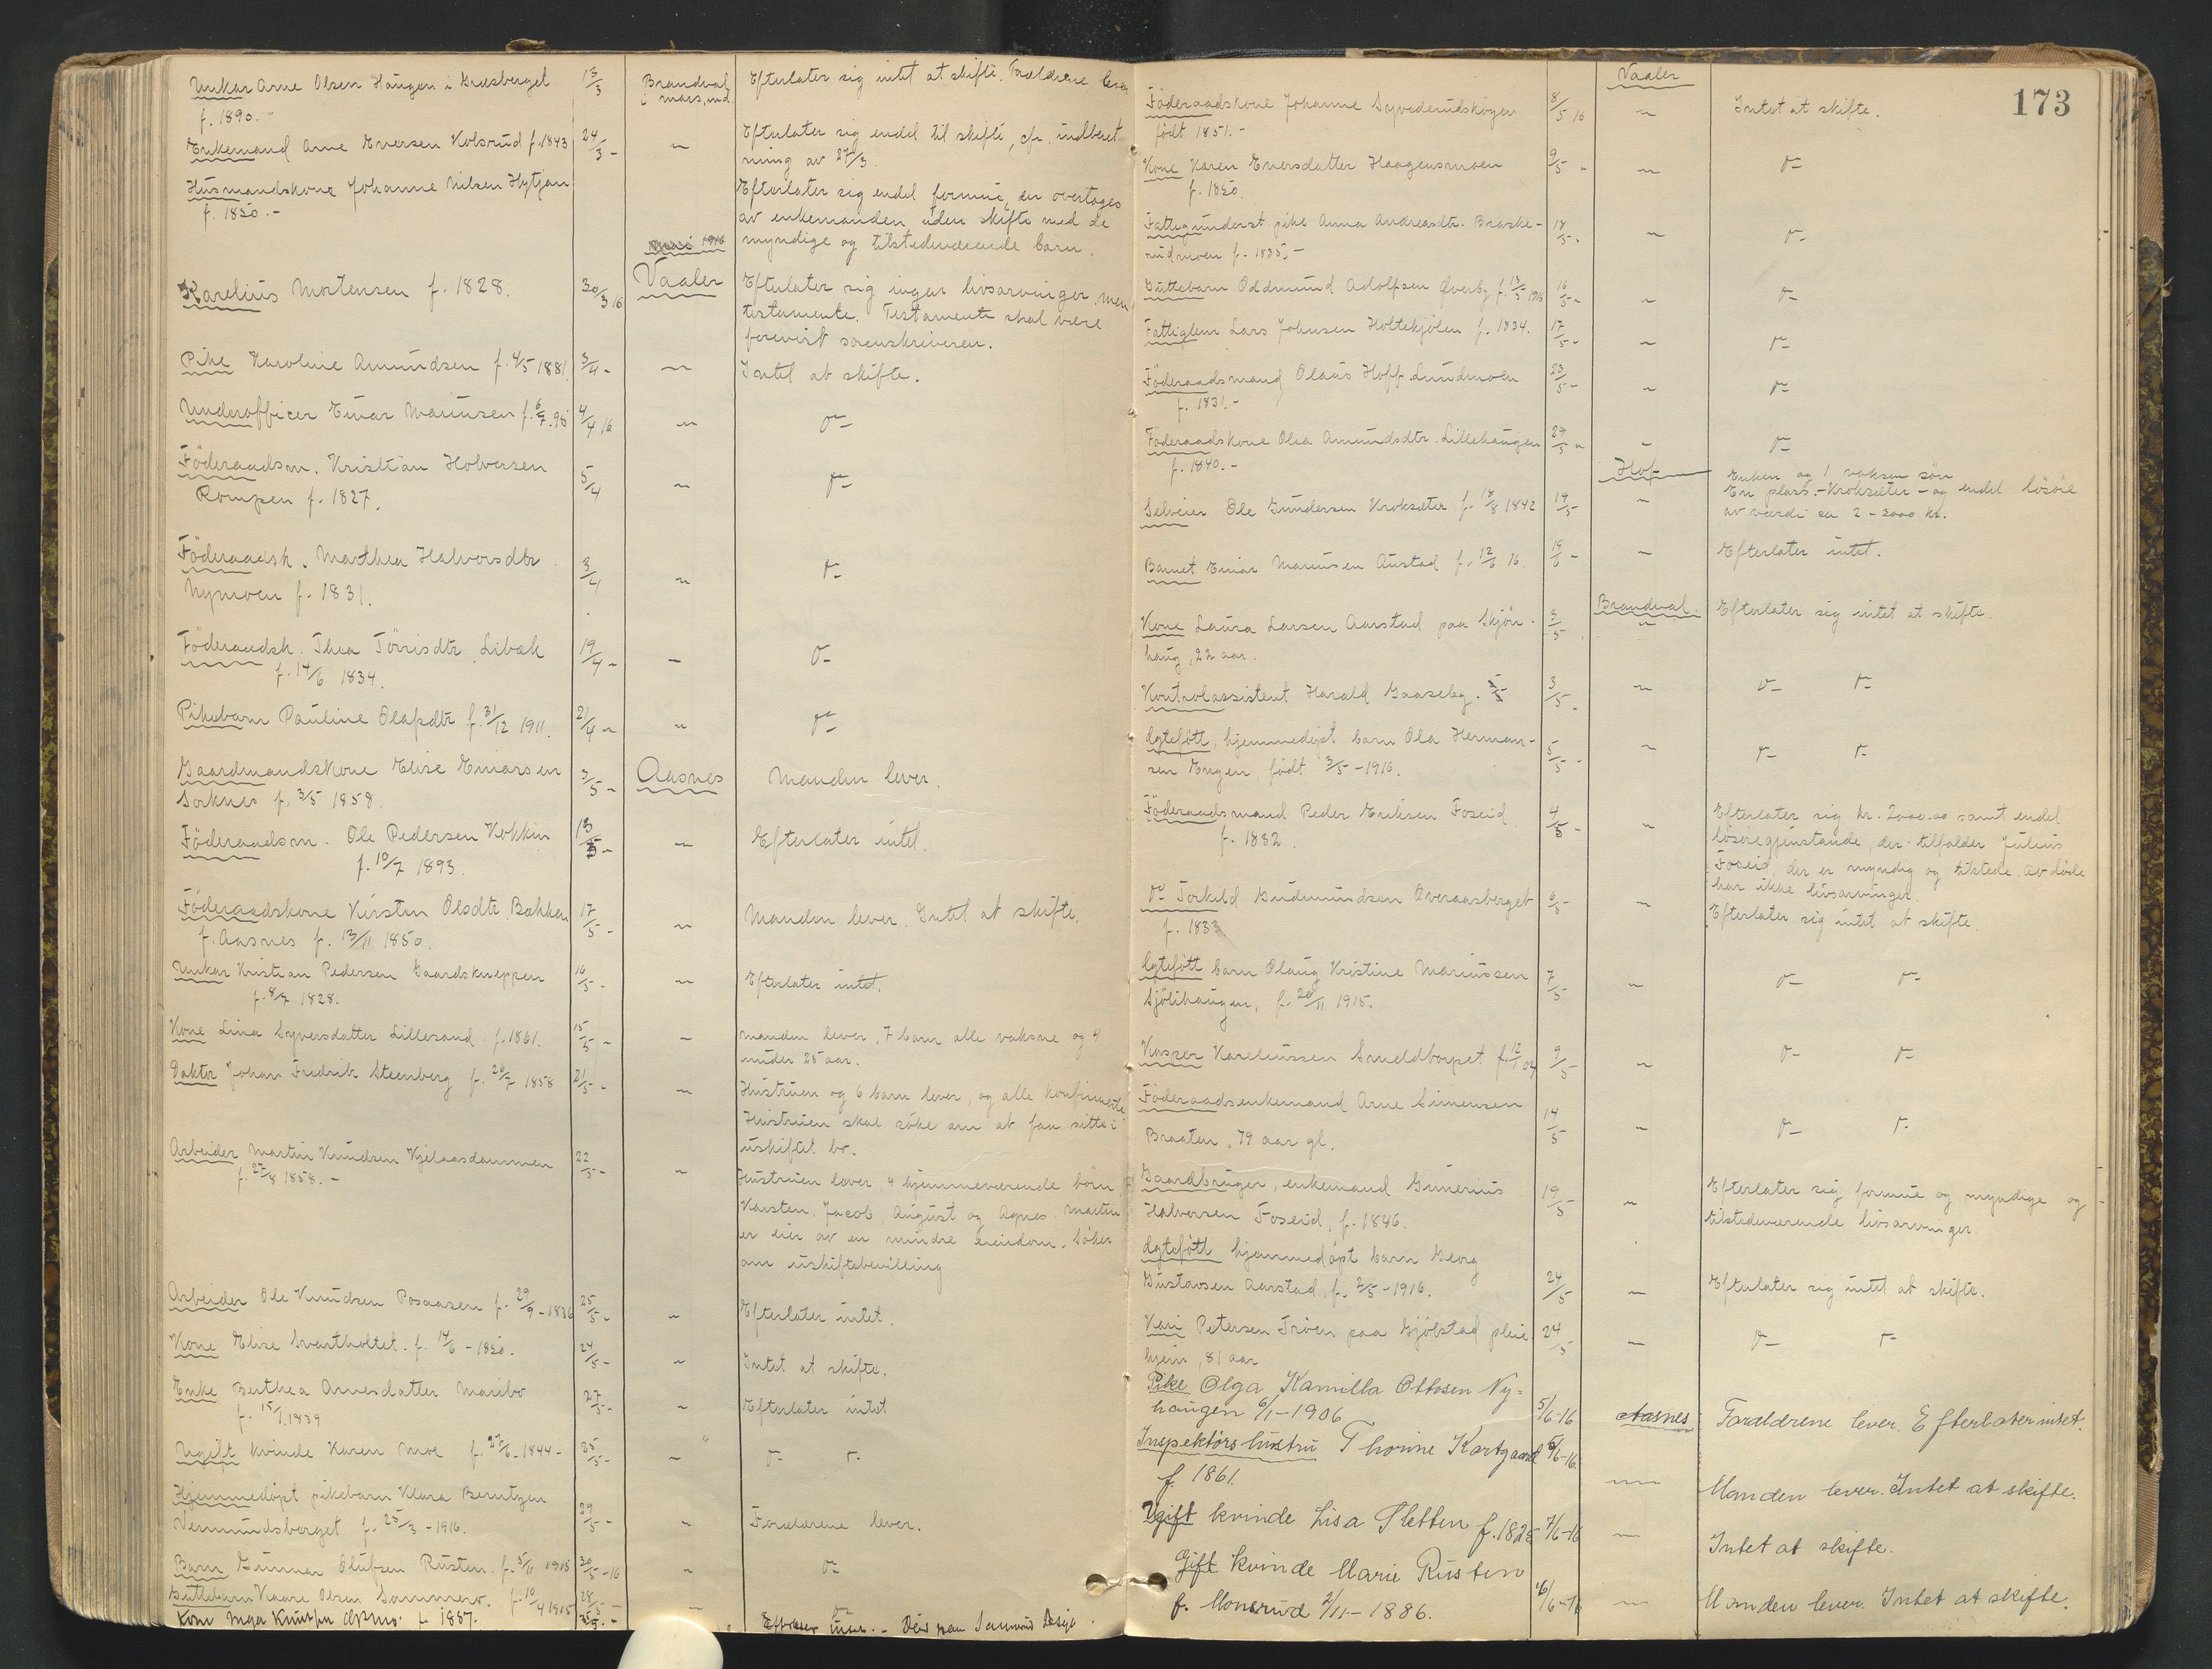 Unkar Arne Olsen Haugen i Grasberget 13/3 Brandval Efterlater sig intet at skifte. Foreldrene
f. 1890.- i mars, md.
Enkemand Arne Eversen Kolsrud f. 1843 24/3 - " Efterlater sig endel til skifte, cfr. indberet-
ning av 27/3.
Husmandskone Johanne Nilsen Hytjan Efterlater sig endel formue, der overtages
f. 1850.- av enkemanden uten skifte med de
mai 1916 myndige og tilstedeværende barn.
Karelius Mortensen f. 1828. 30/3 16 Vaaler Efterlater sig ingen livsarvinger, men
testamente. Testamente skal være
forevist sorenskriveren.
Pike Karoline Amundsen f. 4/5 1881. 3/4 - " Intet at skifte.
Underofficer Einar Mariusen f. 6/7. 95 4/4 16 " o-
Föderaadsm. Kristian Holversen 5/4 " o-
Rompen f. 1827.
Föderaadsk. Marthea Halvorsdtr. 3/4 " o-
Nymoen f. 1831.
Föderaadsk. Thea Törrisdtr. Libæk 19/4 - " o-
f. 14/6 1834.
Pikebarn Pauline Olafsdtr f. 31/12 1911. 21/4 - " o-
Gaardmandskone Elise Einarsen 3/5 - Aasnes Manden lever.
Soknes f. 3/5 1858.
Föderaadsm. Ole Pedersen Kokkin 13/5 - " Efterlater intet.
f. 10/7 1893.
Föderaadskone Kirsten Olsdtr. Bakken 17/5 - " Manden lever. Intet at skifte.
f. Aasnes f. 13/11 1850.
Unkar Kristian Pedersen Gaardskneppen 16/5 - " Efterlater intet.
f. 8/7 1828.
Kone Lina Syversdatter Lillesand f. 1861. 15/5 - " manden lever, 7 barn alle voksne og 4
under 25 aar.
Doktor Johan Fredrik Steenberg f. 20/7 1858 21/5 - " Hustruen og 6 barn lever, og alle konfirmerte
Hustruen skal söke om at faa sitte i
uskiftet bo.
Arbeider Martin Knudsen Kjelaasdammen 22/5 - " Hustruen lever, 4 hjemmeværende börn,
f. 27/8 1858.- Karsten, Jacob, August og Agnes. Martin
er eier av en mindre eiendom. Söker
om uskiftebevilling
Arbeider Ole Knudsen Posaasen f. 29/9 - 1836 25/5 - " Efterlater intet.
Kone Elise Svartholtet. f. 14/6 - 1850. 24/5 - " Intet at skifte.
Enke Berthea Arnesdatter Maribo 27/5 - " Efterlater intet
f. 15/1. 1839
Ugift kvinde Karen Moe f. 27/6 - 1844 - 25/5 - " o- o-
Hjemmedöpt pikebarn Klara Berntzen 29/5 - " Forældrene lever.
Vermundsberget f. 25/3 - 1916.
Barn Gunnar Olufsen Rusten. f. 5/11 1915 30/5 - 16 " o-
Guttebarn Kaare Olsen Sommero. f. 10/4 1915 28/5 - " o-
Kone Inga Knutsen f. 1887.
173
Vaaler
Föderaadskone Johanne Syverudskogen 8/5 16 " Intet at skifte.
födt 1851.-
Kone Karen Eversdatter Haagensmoen 9/5 - " o-
f. 1850.
Fattigunderst. pike Anna Andreasdtr. Braske- 18/5 - " o-
rudmoen f. 1835.-
Guttebarn Oddmund Adolfsen Overby f. 13/5 1916 16/5 - " o-
Fattiglem Lars Johnsen Holtekjölen f. 1834. 17/5 - " o-
Föderaadsmand Olaus Hoff Lundmoen 23/5 - " o-
f. 1831.-
Föderaadskone Olea Amundsdtr. Lillehaugen 29/5 - " o-
f. 1840.-
Hof Enken og 1 voksen sön
Selveier Ole Gundersen Kroksæter f. 18/8 1842 19/5 - " En plass.- Kroksæter - og endel lösöre
av værdi ca 2 - 3000 kr.
Barnet Einar Mariusen Austad f. 12/6 16. 19/6 - " Efterlater intet.
Brandval.
Kone Laura Larsen Aarstad paa Skjön- 3/5 - " Efterlater sig intet at skifte.
haug, 22 aar.
Kontrolassistent Harald Gaaseby. 3/5 - " o- o-
Egtefött, hjemmedöpt barn Ola Herman- 5/5 - " o- o-
sen Engen, födt 3/5 - 1916.
Föderaadsmand Peder Eriksen Foseid 4/5 - " Efterlater sig kr. 2000.00 samt endel
f. 1832. lösöregjenstande, der tilfalder Julius
Foseid, der er myndig og tilstede. Avdöde
har ikke livsarvinger.
o- Torkild Gudmundsen Overaasberget 6/5 - " Efterlater sig intet at skifte.
f. 1833
Egtefött barn Olaug Kristine Mariussen 7/5 " o- o-
Sjölihaugen, f. 20/11 1915.
Kasper Kareliussen Smeldtorpet f. 12/1 04 9/5 " o- o-
Föderaadsenkemand Arne Simensen 14/5 " o- o-
Braaten, 79 aar gl.
Gaardbruger, enkemand Gunerius 19/5 " Efterlater sig formue og myndige og
Halvorsen Foseid, f. 1846. tilstedeværende livsarvinger.
Egtefött hjemmedöpt barn Georg
Gustavsen Aarstad, f. 2/5 - 1916. 24/5 " Efterlater sig intet at skifte.
Kari Petersen Tröen paa Gjölstad pleie- 24/5 " o- o-
hjem, 81 aar
Pike Olga Kamilla Ottosen Ny=
haugen 6/1 - 1906 5/6 - 16 Aasnes Forældrene lever. Efterlater intet.
Inspektörshustru Thorine Kartgaard 5/6 - 16.
f. 1861. " Manden lever. Intet at skifte.
Ugift kvinde Lisa Sletten f. 1828 7/6 - 16 " Intet at skifte.
Gift kvinde Marie Rusten
f. Monsrud 2/11 - 1886. 10/6 - 16 " Manden lever. Intet at skifte.